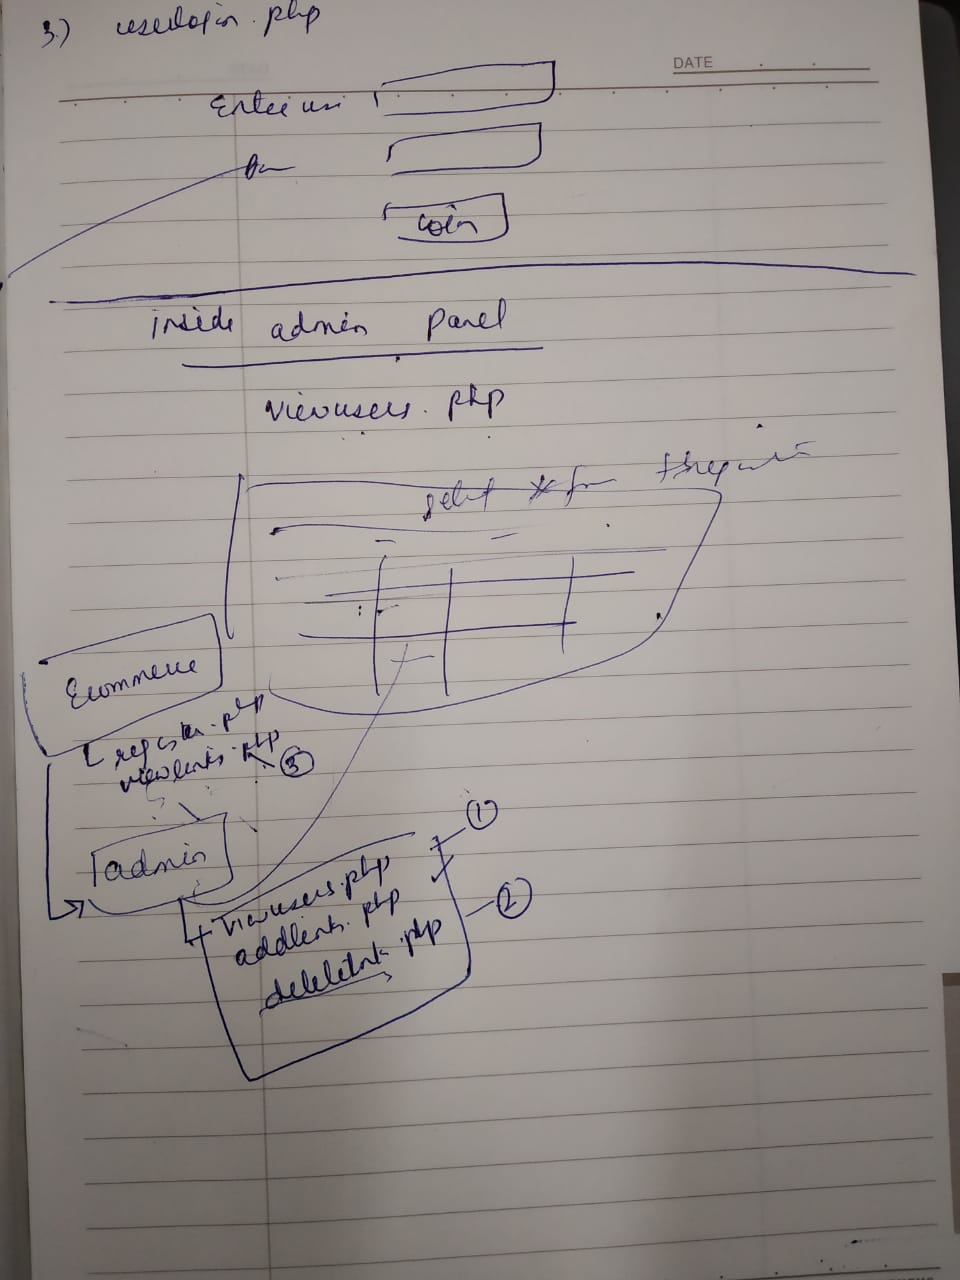 3.) userlogin.php
DATE
Enter
inside admin panel
viewusers.php
select * from
Ecommerce
register.php
viewlinks.php
3
admin
1
viewusers.php
addlinks.php
2
deletelink.php